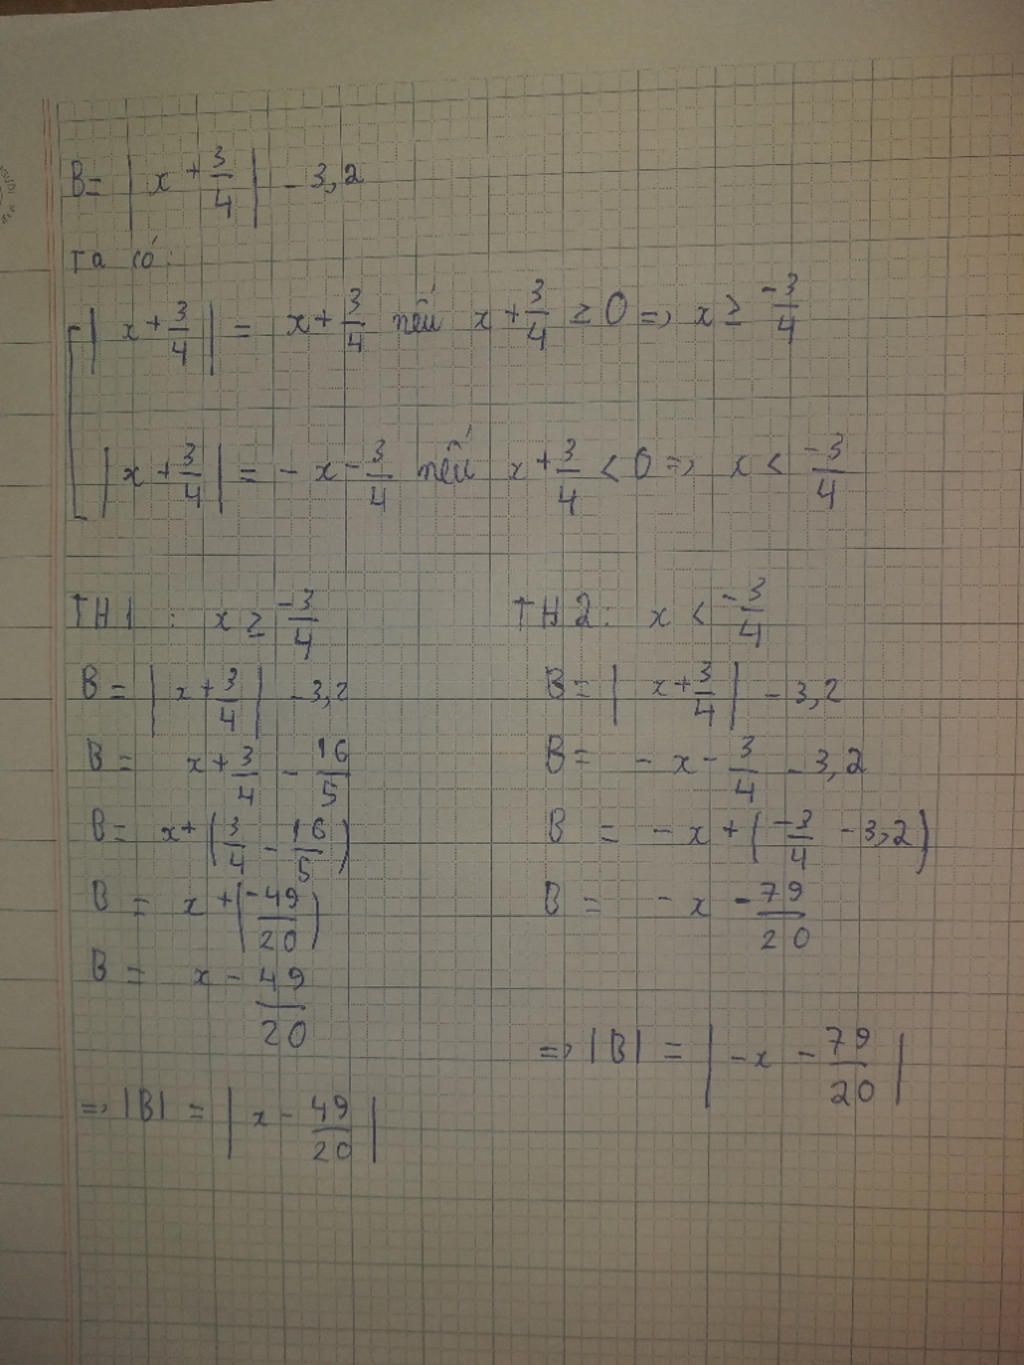 B = |x + 3/4| - 3,2
Ta có:
|x + 3/4| = x + 3/4 nếu x + 3/4 ≥ 0 => x ≥ -3/4
|x + 3/4| = - x - 3/4 nếu x + 3/4 < 0 => x < -3/4
TH1 : x ≥ -3/4
B = |x + 3/4| - 3,2
B = x + 3/4 - 16/5
B = x + (3/4 - 16/5)
B = x + (-49/20)
B = x - 49/20
=> |B| = |x - 49/20|
TH2 : x < -3/4
B = |x + 3/4| - 3,2
B = - x - 3/4 - 3,2
B = - x + (-3/4 - 3,2)
B = - x - 79/20
=> |B| = |-x - 79/20|